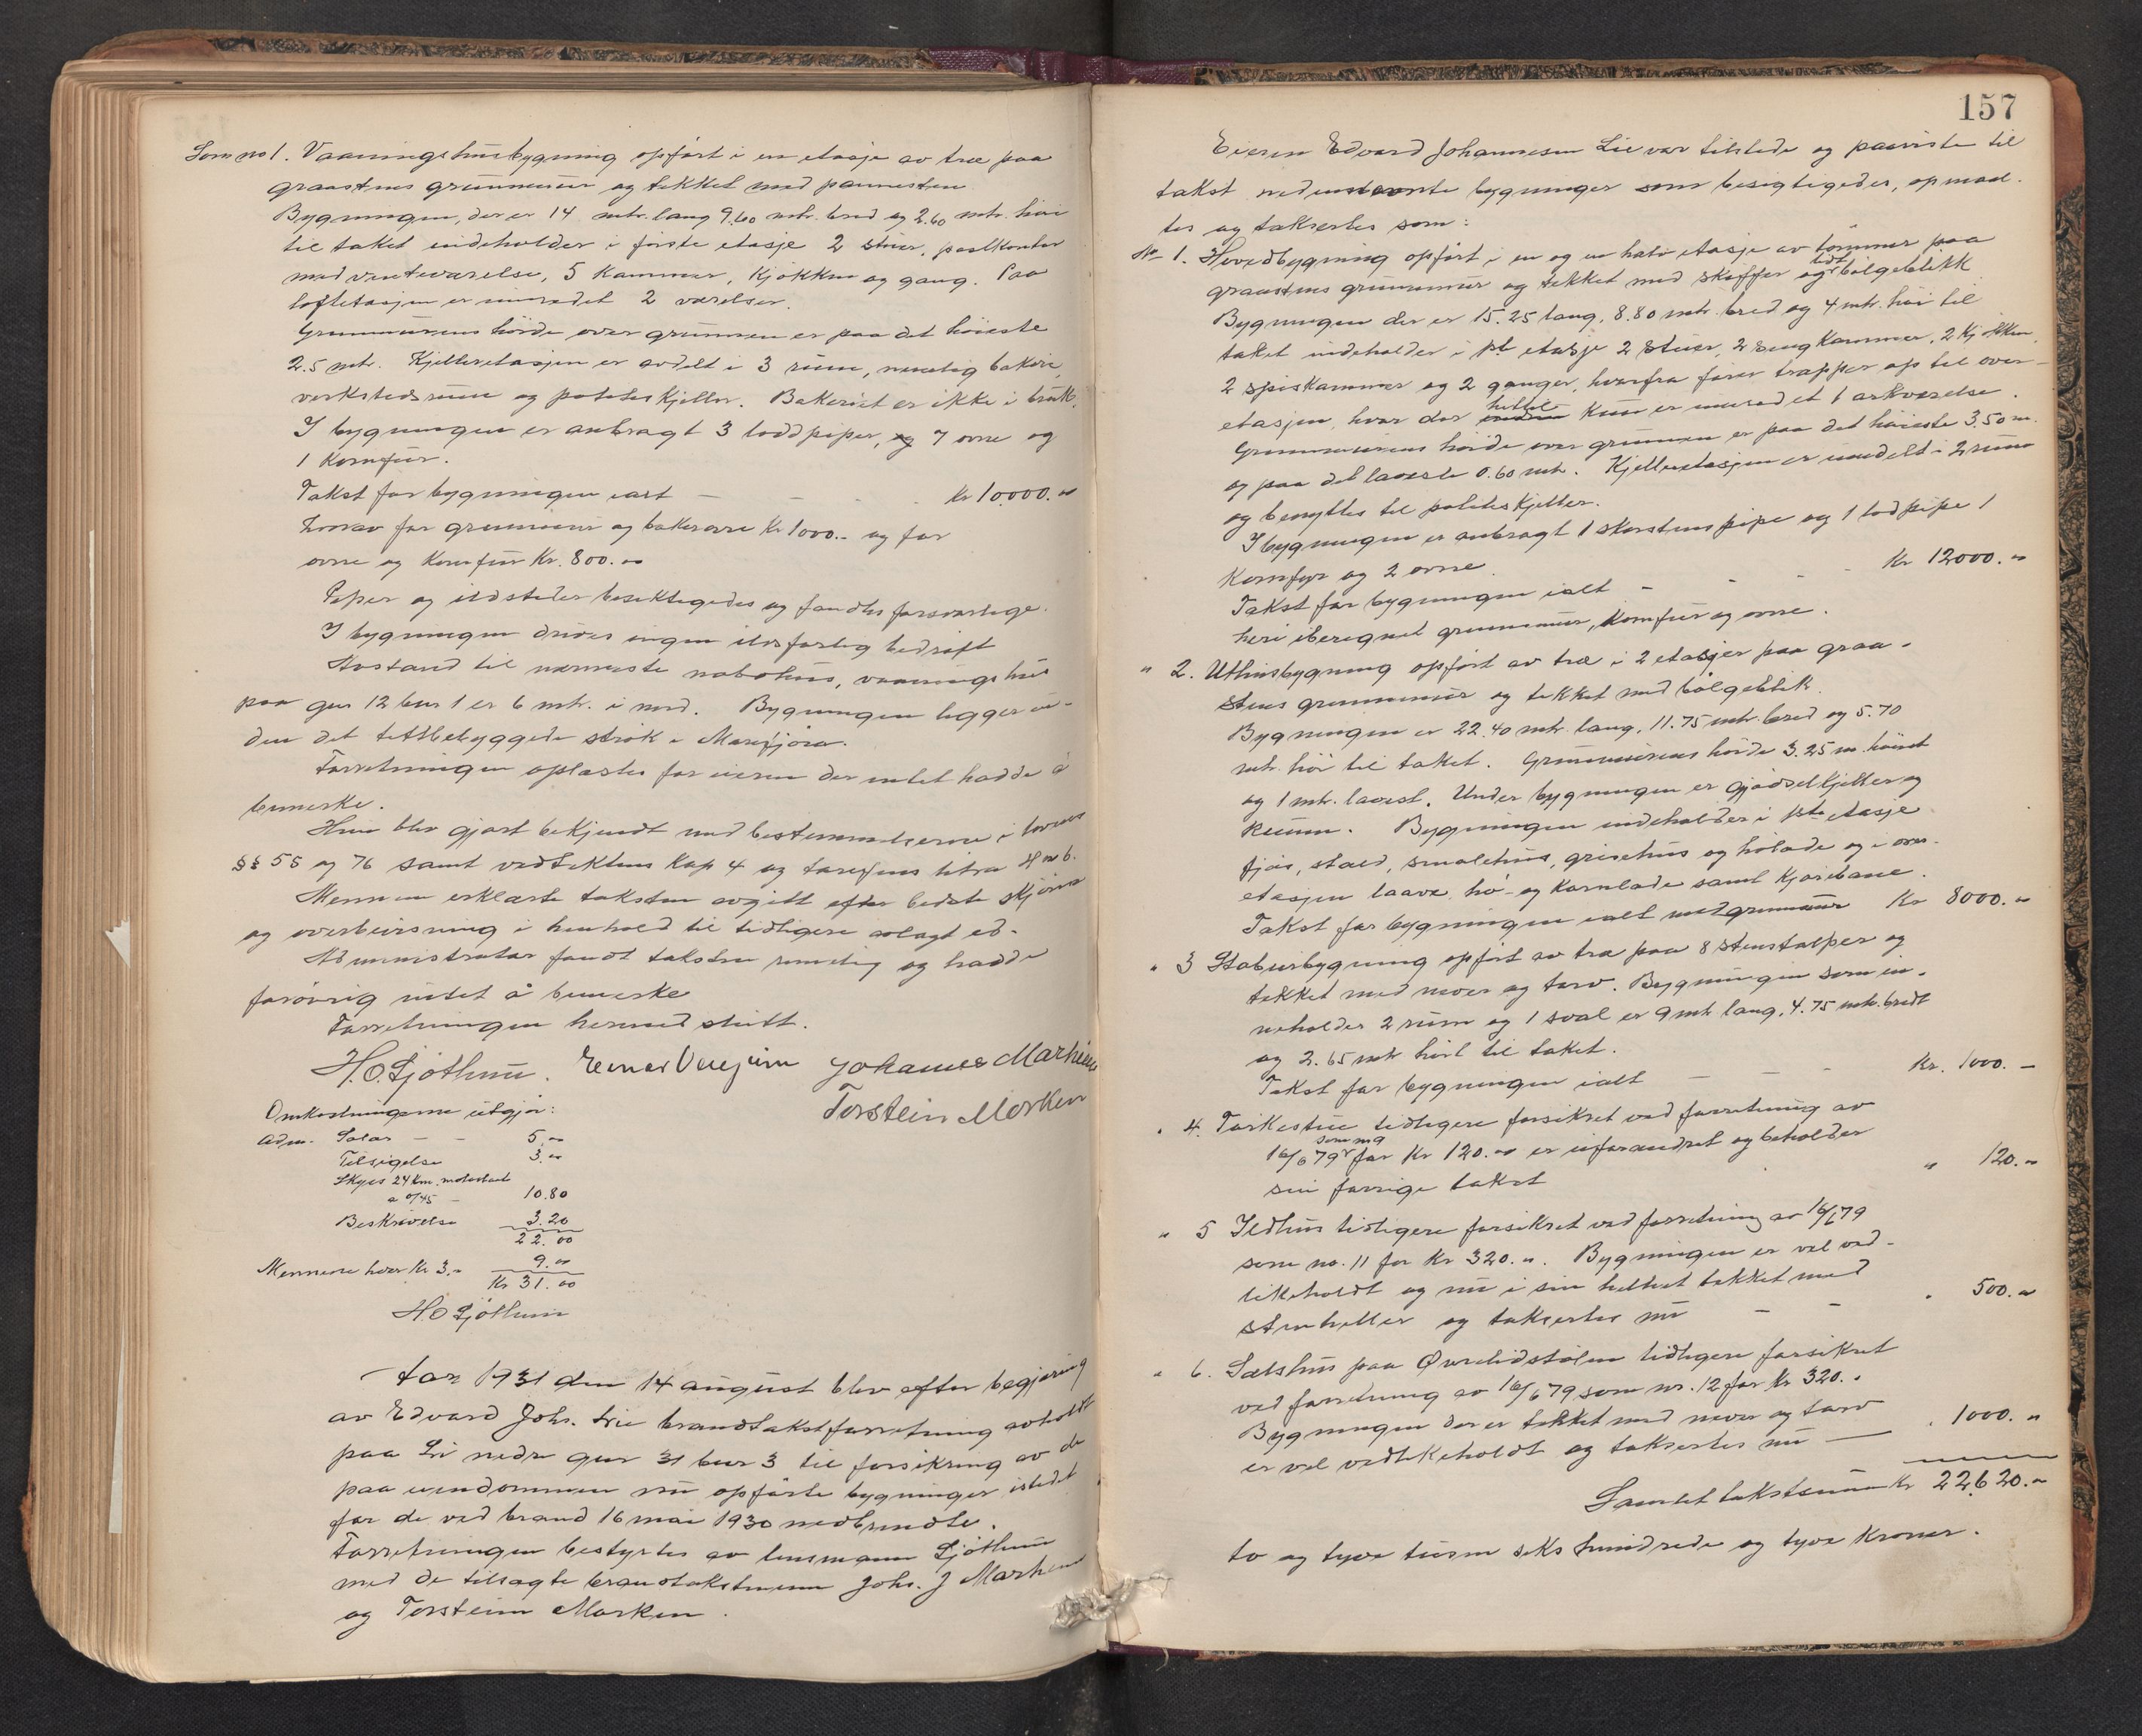 Som no 1. Vaaningshusbygning opført i en etasje av træ paa
graastens grunnmur og tekket med pannesten.
Bygningen, der er 14 mtr. lang 9.60 mtr. bred og 2.60 mtr. høi
til taket indeholder i første etasje 2 stuer, postkontor
med venteværelse, 5 kammer, kjøkken og gang. Paa
loftetasjen er innredet 2 værelser.
Grunnmurens høide over grunnen er paa det høieste
2.5 mtr. Kjelleretasjen er avdelt i 3 rum, nemlig bakeri,
verkstedsrum og poteteskjeller. Bakeriet er ikke i bruk.
I bygningen er anbragt 3 loddpiper, og 7 ovne og
1 komfur.
Takst for bygningen ialt - - - Kr 10.000.00
hvorav for grunnmur og bakerovn Kr 1000.- og for
ovne og komfur Kr. 800.00
Piper og ildsteder besiktigedes og fandtes forsvarlige.
I bygningen drives ingen ildsfarlig bedrift
Avstand til nærmeste nabohus, vaaningshus
paa gnr 12 bnr 1 er 6 mtr. i nord. Bygningen ligger in-
den det tettbebyggede strøk i Marifjøra.
Forretningen oplæstes for eieren der intet hadde å
bemerke.
Han blev gjort bekjendt med bestemmelserne i lovens
§§ 55 og 76 samt vedtektens kap 4 og tarifens litra H no 6.
Mennene erklærte taksten avgitt efter bedste skjønn
og overbevisning i henhold til tidligere avlagt ed.
Administrator fandt taksten rimelig og hadde
forøvrig intet å bemerke
Forretningen hermed slutt.
H.O. Sjøthun. Johannes Marheim
Torstein Morken
Omkostningerne utgjør:
Adm. Salær - - 5.00
Tilsigelse 3.00
Skyss 24 km. motorbaat
a 0/45 - 10.80
Beskrivelse 3.20
22.00
Mennene hver Kr 3.- 9.00
Kr 31.00
H.O Sjøthun
Aar 1931 den 14 august blev efter begjæring
av Edvard Johs. Lie brandtakstforretning avholdt
paa Li nedre gnr 31 bnr 3 til forsikring av de
paa eiendommen nu opførte bygninger istedet
for de ved brand 16 mai 1930 nedbrendte.
Forretningen bestyrtes av lensmann Sjøthun
med de tilsagte brandtakstmenn Johs. J Marheim
og Torstein Morken.
157
Eieren Edvard Johannesen Lie var tilstede og paaviste til
takst nedennevnte bygninger som besigtigedes, opmaal-
tes og taksertes som:
No 1. Hovedbygning opført i en og en halv etasje av tømmer paa
graastens grunnmur og tekket med skiffer og litt bølgeblikk
Bygningen der er 15.25 lang, 8.80 mtr. bred og 4 mtr. høi til
taket indeholder i 1ste etasje 2 stuer, 2 sengkammer, 2 kjøkken,
2 spiskammer og 2 ganger, hvorfra fører trapper op til over-
etasjen, hvor der hittil kun er innredet 1 arkværelse.
Grunnmurens høide over grunnen er paa det høieste 3.50 m.
og paa det laveste 0.60 mtr. Kjelleretasjen er inndelt i 2 rum
og benyttes til poteteskjeller.
I bygningen er anbragt 1 skorstenspipe og 1 lodpipe 1
Komfyr og 2 ovne.
Takst for bygningen ialt - - - - Kr 12000.00
heri iberegnet grunnmur, komfur og ovne.
" 2. Uthusbygning opført av træ i 2 etasjer paa graa-
stens grunnmur og tekket med bølgeblikk.
Bygningen er 22.40 mtr. lang, 11.75 mtr. bred og 5.70
mtr. høi til taket. Grunnmurens høide 3.25 m. høiest
og 1 mtr. lavest. Under bygningen er gjødselkjeller og
Bygningen indeholder i 1ste etasje
fjøs, stald, smalehus, grisehus og hølade og i over-
etasjen laave, hø- og kornlade samt kjørebane.
Takst for bygningen ialt med grunnmur Kr 8000.00
" 3 Stabursbygning opført av træ paa 8 stenstolper og
tekket med never og torv. Bygningen som in-
neholder 2 rum og 1 sval er 9 mtr lang, 4.75 mtr. bredt
og 2.65 mtr høit til taket.
Takst for bygningen ialt - - - Kr. 1000.-
" 4. Tørkestue tidligere forsikret ved forretning av
16/6 79 som no 9 for Kr 120.00 er uforandret og beholder
sin forrige takst " 120.00
" 5 Ildhus tidligere forsikret ved forretning av 16/6 79
som no. 11 for Kr 320.00. Bygningen er vel ved-
likeholdt og nu i sin helhet tekket med
stenheller og taksertes nu - - " 500.00
" 6. Sælshus paa Øvrelidstølen tidligere forsikret
ved forretning av 16/6 79 som nr. 12 for Kr 320.-
Bygningen der er tekket med never og torv
er vel vedlikeholdt og taksertes nu - " 1000.00
Samlet takstsum Kr 22620.00
to og tyve tusen seks hundrede og tyve kroner.